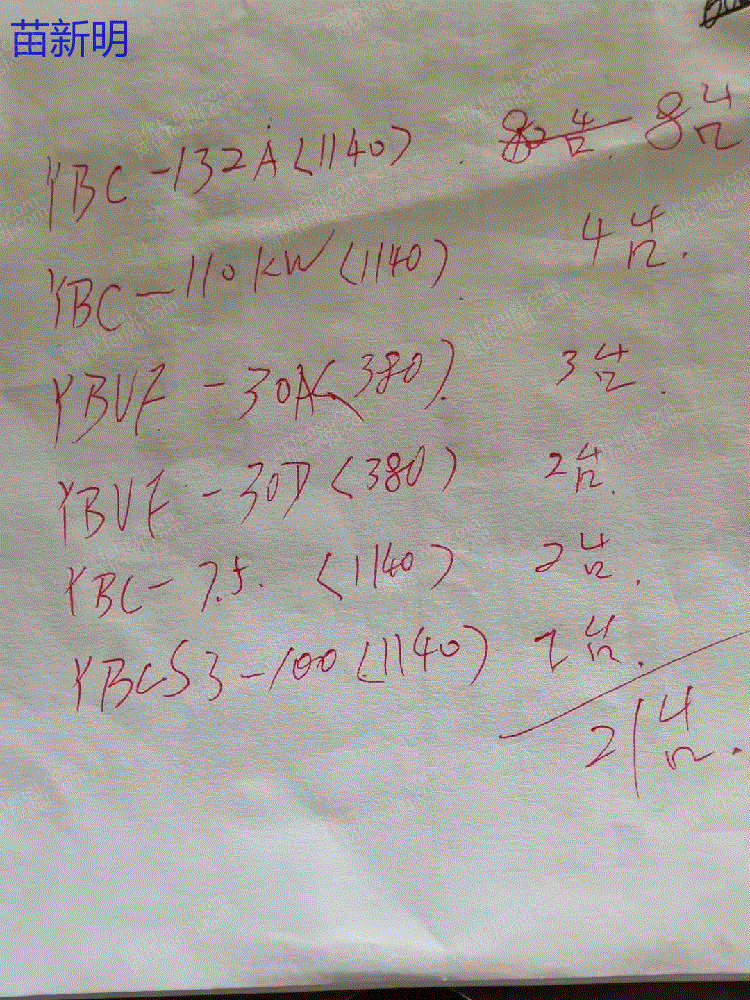 苗新明
YBC-132A(1140) 8台
YBC-110KW(1140) 4台.
YBUF-30A(380). 3台.
YBUF-30D(380) 2台.
YBC-7.5. (1140) 2台.
YBCS3-100(1140) 2台.
21台.